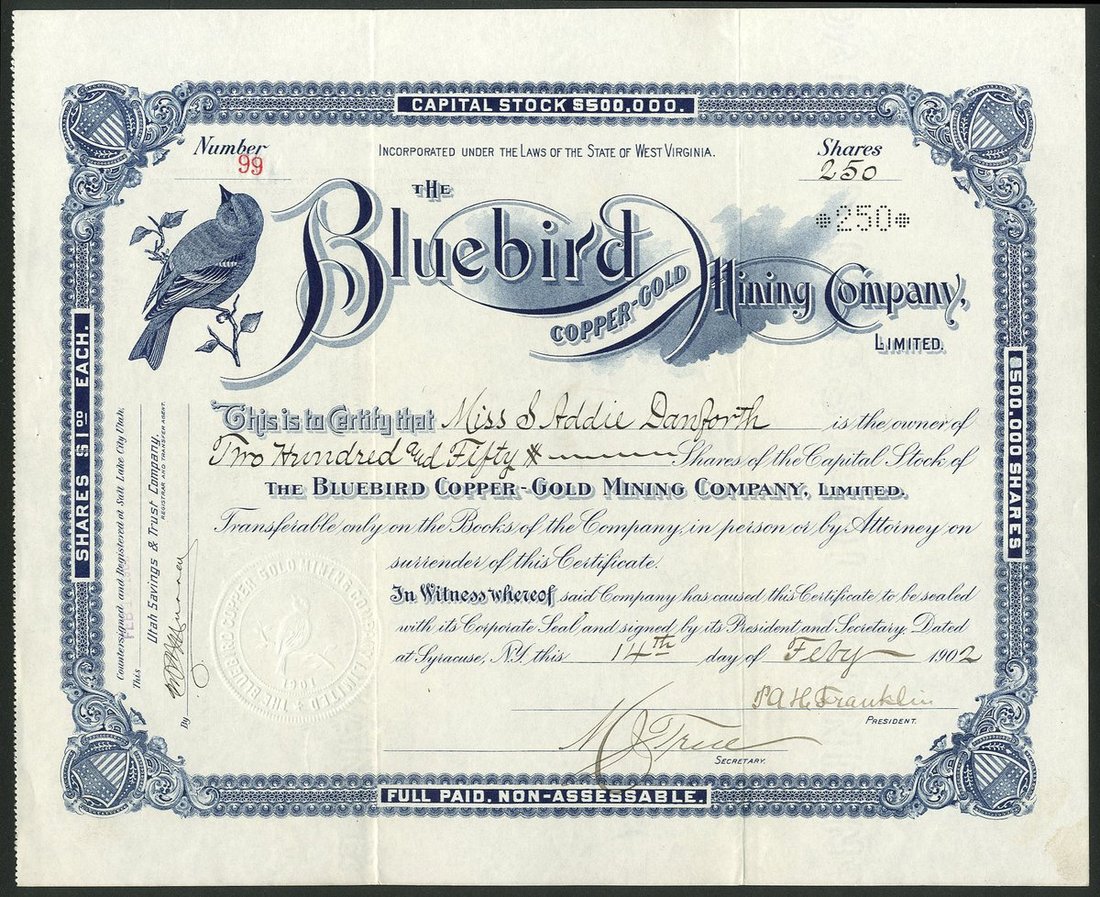 CAPITAL STOCK $500,000.
Number
99
INCORPORATED UNDER THE LAWS OF THE STATE OF WEST VIRGINIA.
Shares
250
*250*
THE
Bluebird
COPPER-GOLD
Mining Company,
LIMITED.
SHARES $1.00 EACH.
500,000 SHARES
This is to Certify that Miss S Addie Danforth is the owner of
Two Hundred and Fifty Shares of the Capital Stock of
THE BLUEBIRD COPPER-GOLD MINING COMPANY, LIMITED.
Transferable only on the Books of the Company, in person or by Attorney on
surrender of this Certificate.
In Witness whereof said Company has caused this Certificate to be sealed
with its Corporate Seal and signed by its President and Secretary. Dated
at Syracuse, N.Y. this 14th day of Feby 1902
Countersigned and Registered at Salt Lake City Utah.
This
Utah Savings & Trust Company.
REGISTRAR AND TRANSFER AGENT.
By
THE BLUEBIRD COPPER GOLD MINING COMPANY LIMITED
A H Franklin
PRESIDENT.
M J True
SECRETARY.
FULL PAID. NON-ASSESSABLE.